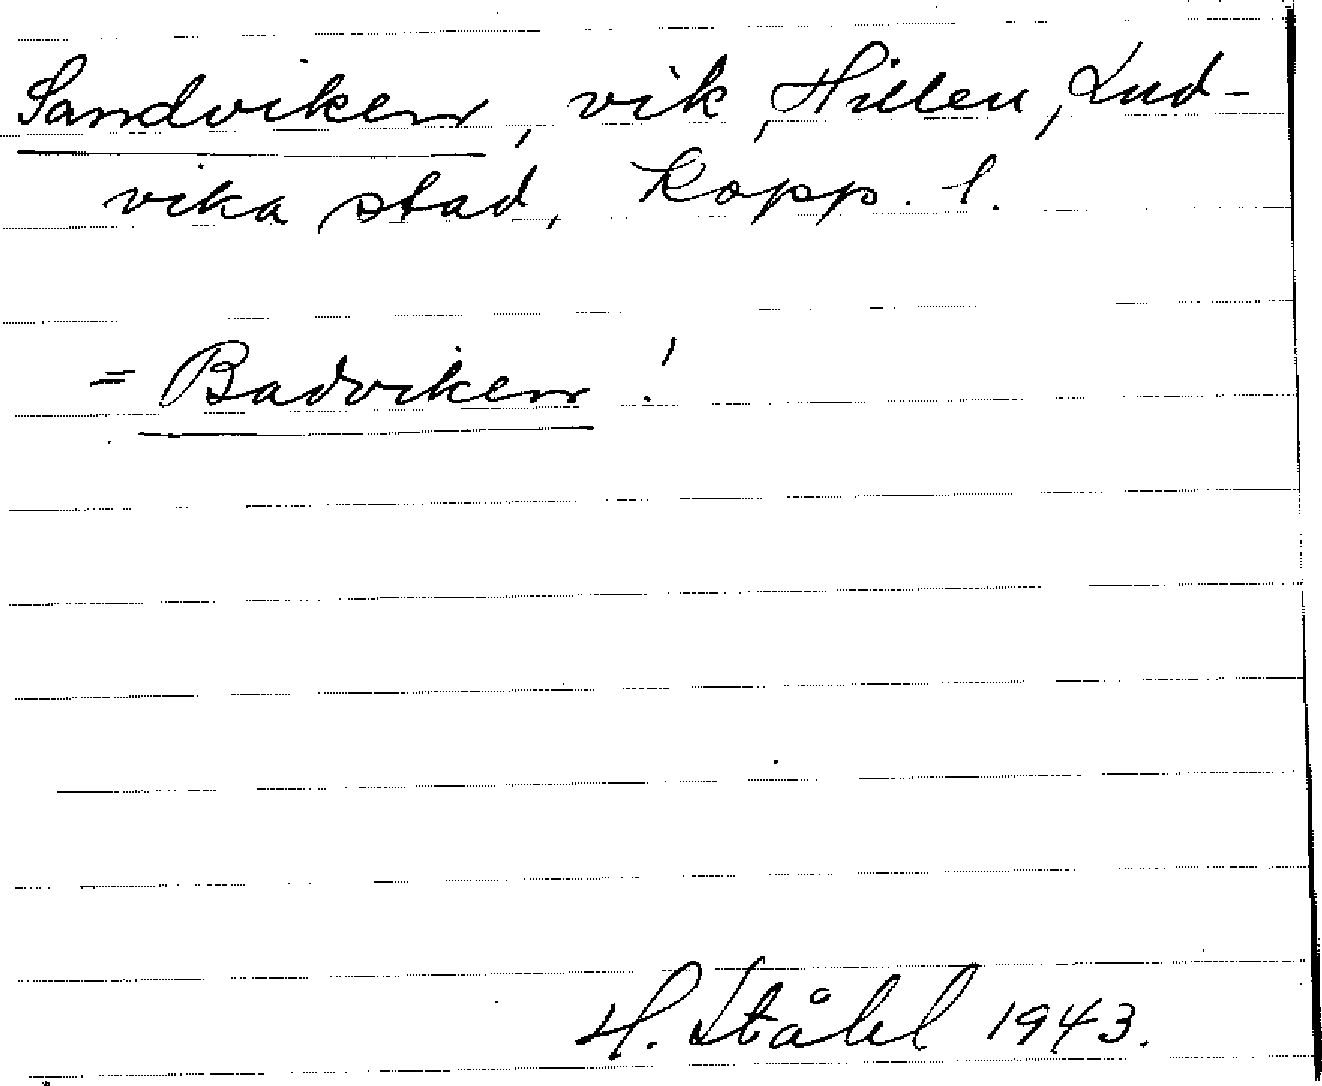 Sandviken, vik, Hillen, Lud-
vika stad, Kopp. l.
= Badviken!
H. Ståhl 1943.